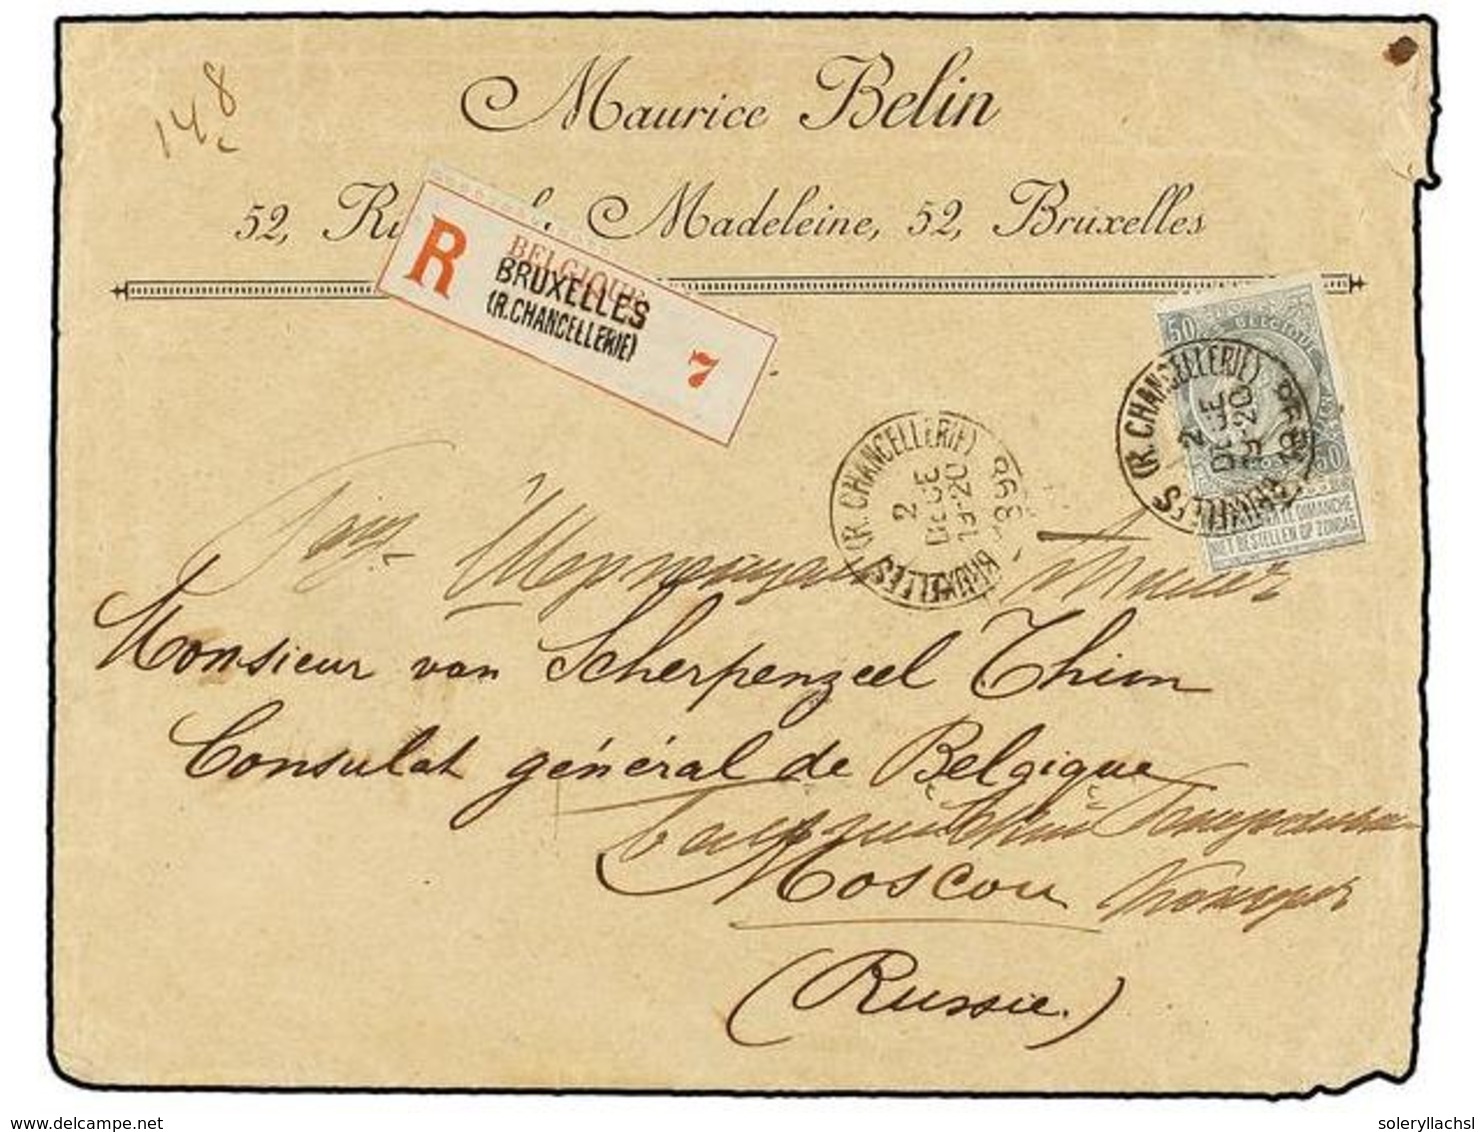 148
Maurice Belin
52, Ru de Madeleine, 52, Bruxelles
R
BELGIQUE
BRUXELLES
(R. CHANCELLERIE)
7
50 BELGIQUE
50
NE PAS LIVRER LE DIMANCHE
NIET BESTELLEN OP ZONDAG
BRUXELLES (R. CHANCELLERIE)
2
DECE
19-20
1898
BRUXELLES (R. CHANCELLERIE)
2
DECE
19-20
1898
Monsieur van Scherpenzeel Thim
Consulat général de Belgique
Moscou
(Russie.)
www.delcampe.net
soleryllachsl